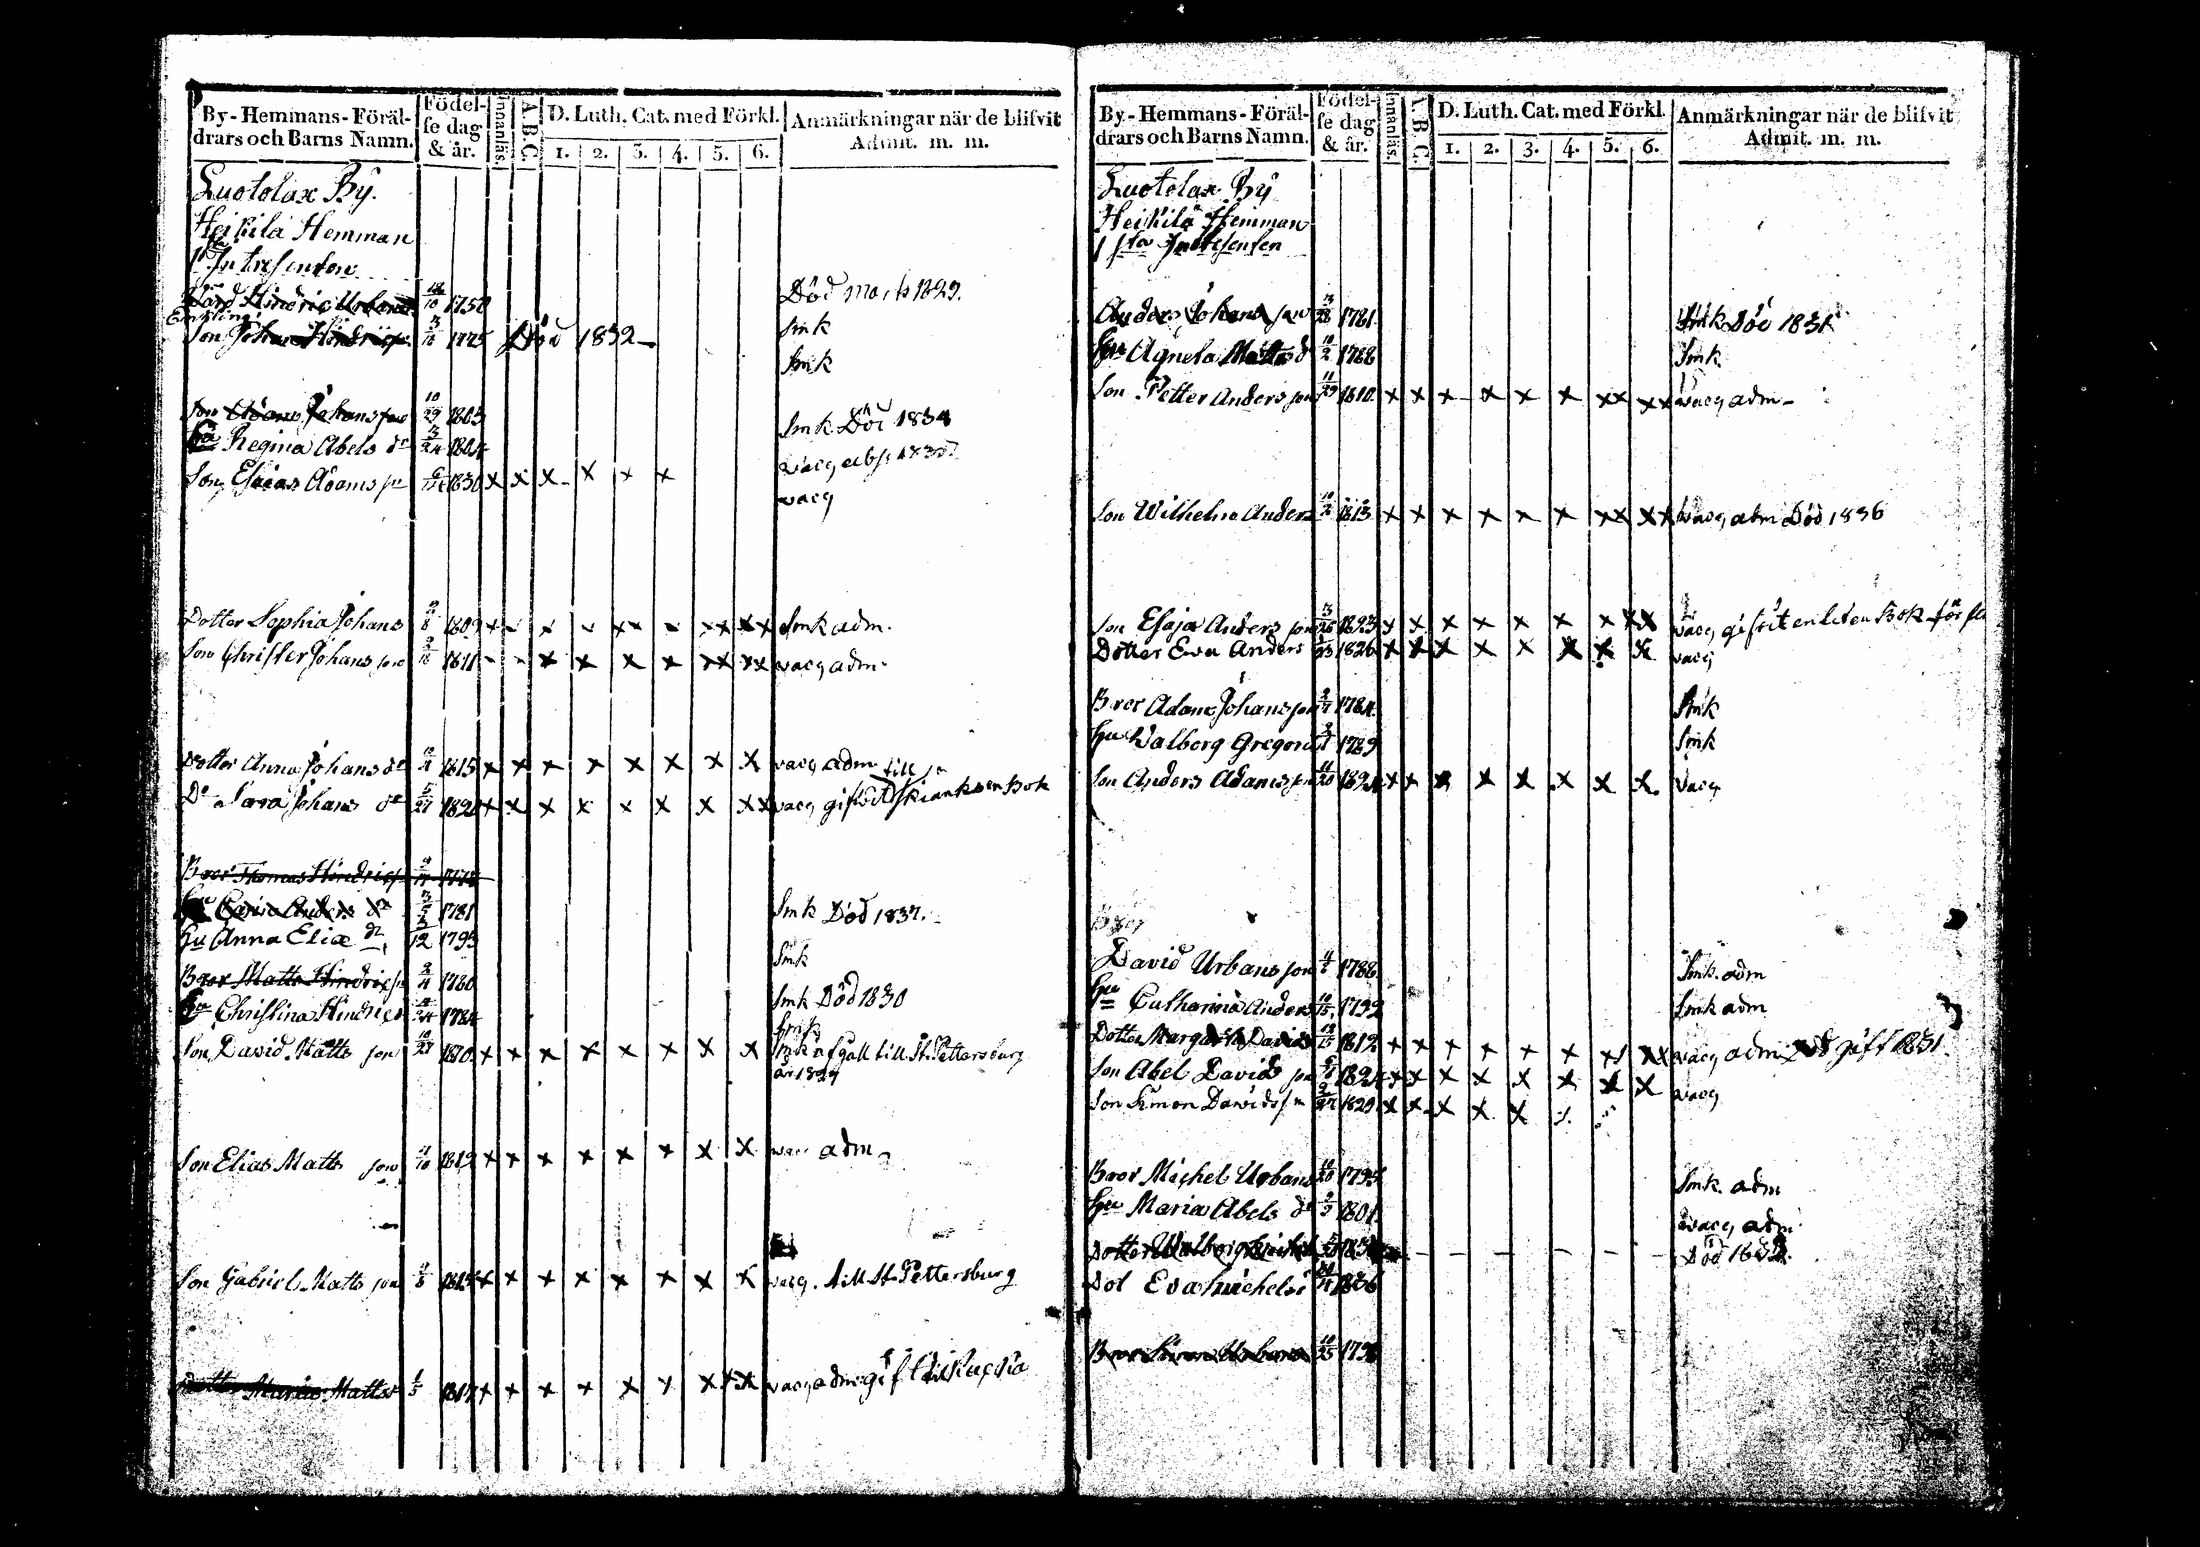 By-Hemmans-Föräl-
drars och Barns Namn.
Födel-
se dag
& år.
Innanläs.
A.B.C.
D. Luth. Cat. med Förkl.
1. 2. 3. 4. 5. 6.
Anmärkningar när de blifvit
Admit. m. m.
Luotolax By.
Heikilä Hemman
1sta Intresenten
Hindric Urbans 10 1750 Död 1829.
Enkling
Son Johan Hindrics 1775 Död 1832 - Smk
Smk
Son Adam Johans son 10/29 1803 Smk Död 1834
Hu Regina Abels dr 3/24 1804 vacg abs.
Son Esaias Adams sn 1830 x x x x x x vacg
Dotter Sophia Johans 1809 x x x x x x x x x x Smk adm.
Son Christer Johans son 1811 x x x x xx xx vacg adm.
Dotter Anna Johans dr 1815 x x x x x x x x vacg adm
Do Sara Johans dr 5/27 1824 x x x x x x x xx vacg gift till Skianksen Bok
Bror Thomas Hindrics
Hu Carin Anders dr 1781 Smk Död 1837.
Hu Anna Eliæ dr 12 1795 Smk
Bror Matts Hindrics sn 1780 Smk Död 1830
Hu Christina Hindrics 1784 Smk
Son David Matts son 10/27 1810 x x x x x x x x Smk afgått till St. Pettersburg
år 1829
Son Elias Matts son 10 1812 x x x x x x x x vacc adm
Son Gabriel Matts son 1815 x x x x x x x x vacg. till St. Pettersburg
Dotter Maria Matts 1817 x x x x x x xx x vacg adm gift till
By-Hemmans-Föräl-
drars och Barns Namn.
Födel-
se dag
& år.
Innanläs.
A.B.C.
D. Luth. Cat. med Förkl.
1. 2. 3. 4. 5. 6.
Anmärkningar när de blifvit
Admit. m. m.
Luotolax By
Heikilä Hemman
1sta Intresenten
Anders Johans son 1781 Smk Död 1831
Hu Agneta Matts dr 10/2 1788 Smk
Son Petter Anders son 11/29 1810 x x x x x x xx xx vacg adm
Son Wilhelm Anders 10/2 1813 x x x x x x xx xx vacg adm Död 1836
Son Esaja Anders son 3/26 1823 x x x x x x x xx vacg
Dotter Eva Anders 23 1826 x x x x x x x x vacg
Bror Adam Johans son 2/7 1784 Smk
Hu Walborg Gregori 1789 Smk
Son Anders Adams sn 11/20 1824 x x x x x x x x Vacg
Bror
David Urbans son 1788 Smk. adm
Hu Catharina Anders 10/15 1792 Smk adm
Dotter Margreta Davids 12/15 1812 x x x x x x x xx vacg adm gift 1831.
Son Abel Davids son 1824 x x x x x x x x vacg
Son Simon Davids sn 2/27 1829 x x x x x
Bror Michel Urbans 10/20 1795 Smk. adm
Hu Maria Abels dr 2/3 1801 vacg adm
Dotter Walborg Michels - - - - - - Död 1832.
Dot Eva Michels 1836
Bror Simon Urbans 10/25